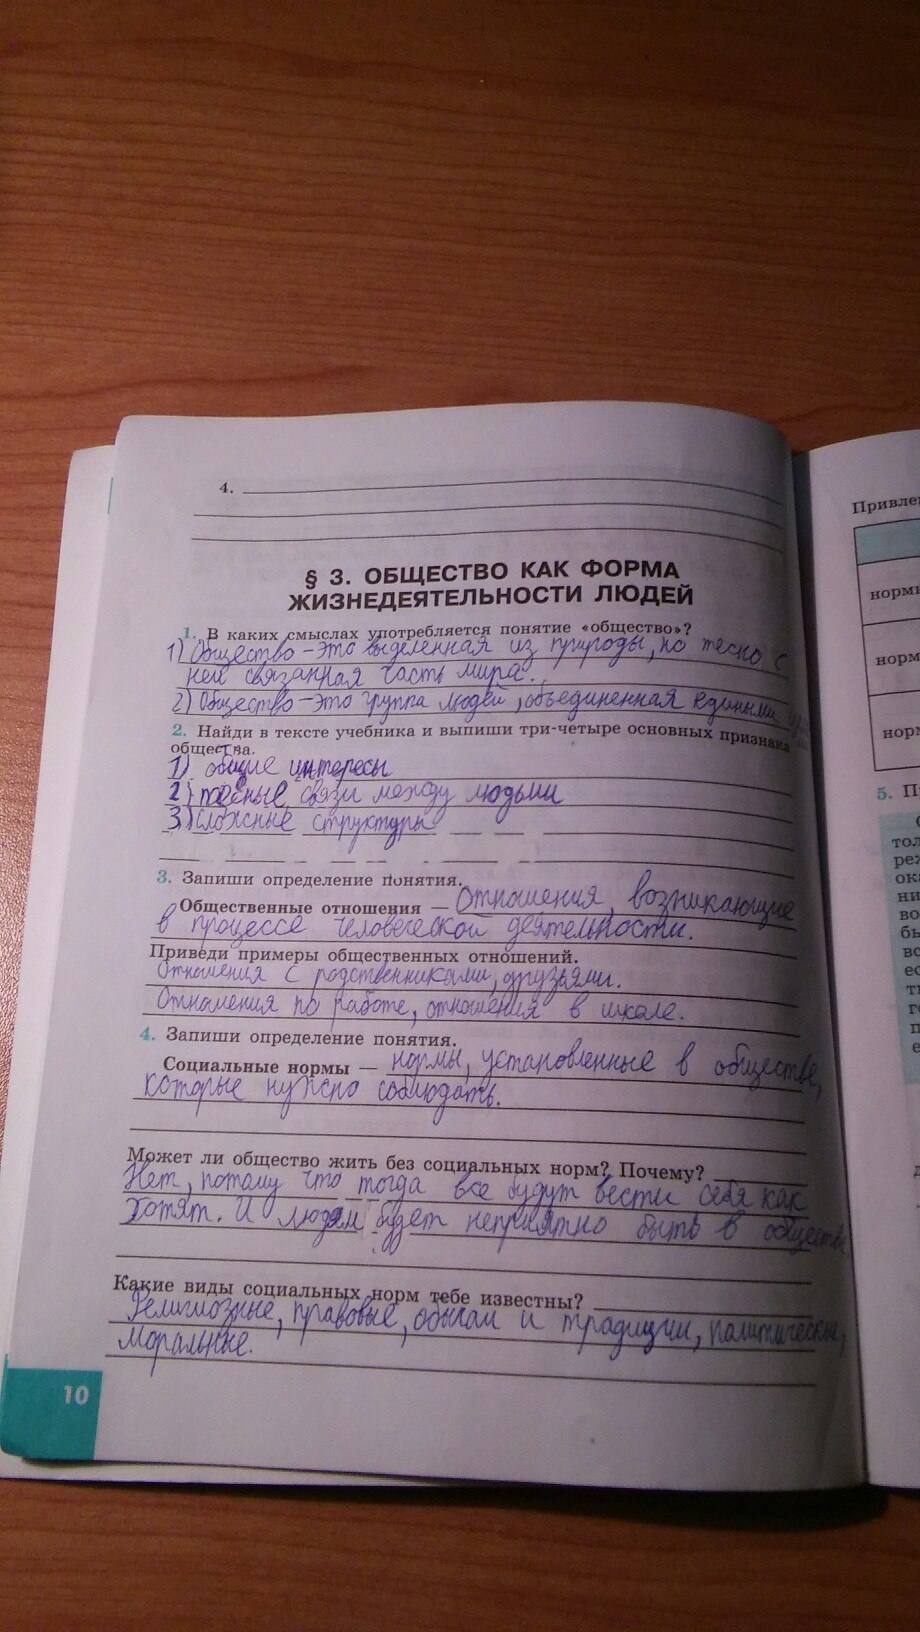 4.
§ 3. ОБЩЕСТВО КАК ФОРМА
ЖИЗНЕДЕЯТЕЛЬНОСТИ ЛЮДЕЙ
1. В каких смыслах употребляется понятие «общество»?
1) Общество - это выделенная из природы, но тесно с
ней связанная часть мира.
2) Общество - это группа людей, объединенная едиными
2. Найди в тексте учебника и выпиши три-четыре основных признака
общества.
1) общие интересы
2) тесные связи между людьми
3) Сложные структуры
3. Запиши определение понятия.
Общественные отношения — Отношения, возникающие
в процессе человеческой деятельности.
Приведи примеры общественных отношений.
Отношения с родственниками, друзьями.
Отношения по работе, отношения в школе.
4. Запиши определение понятия.
Социальные нормы — нормы, установленные в обществе,
которые нужно соблюдать.
Может ли общество жить без социальных норм? Почему?
Нет, потому что тогда все будут вести себя как
хотят. И людям будет неприятно быть в обществе
Какие виды социальных норм тебе известны?
Религиозные, правовые, обычаи и традиции, политические,
моральные.
10
Привле
норм
норм
нор
5. П